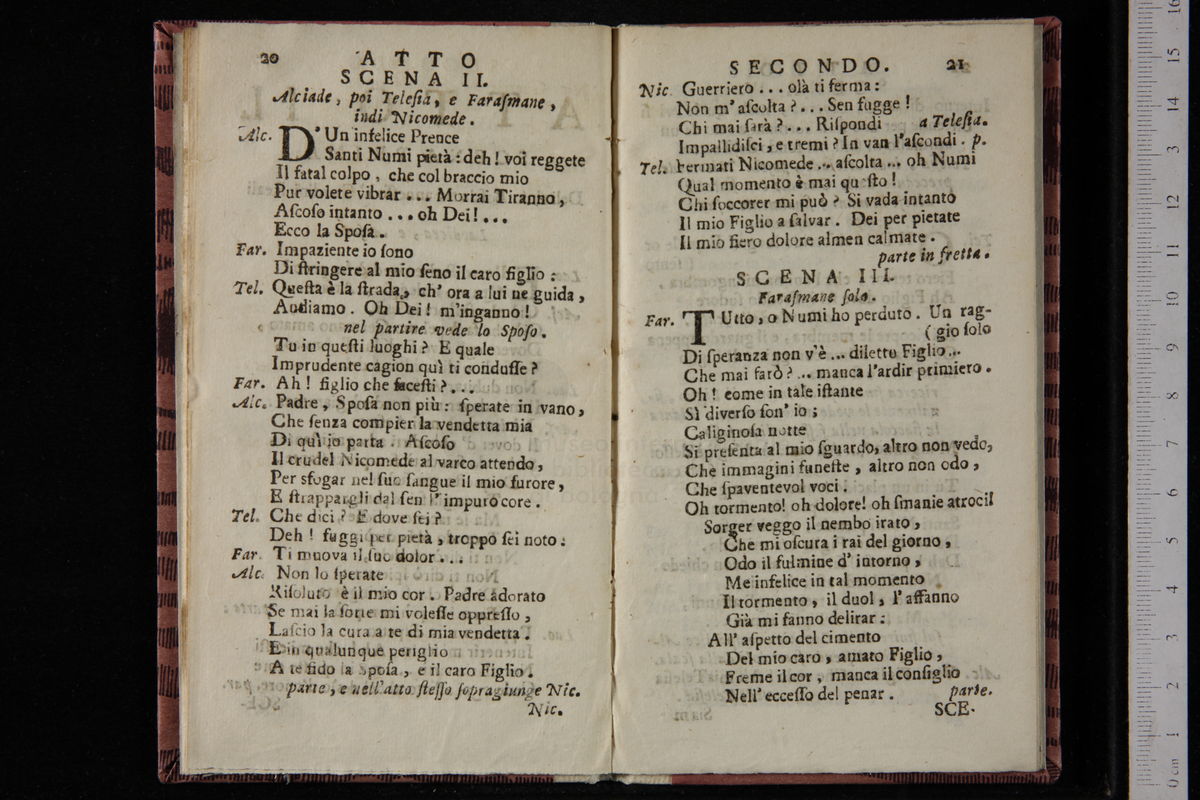 20
ATTO
SCENA II.
Alciade, poi Telesia, e Farasmane,
indi Nicomede.
Alc. D'Un infelice Prence
Santi Numi pietà: deh! voi reggete
Il fatal colpo, che col braccio mio
Pur volete vibrar... Morrai Tiranno,
Ascoso intanto... oh Dei!...
Ecco la Sposa.
Far. Impaziente io sono
Di stringere al mio seno il caro figlio:
Tel. Questa è la strada, ch' ora a lui ne guida,
Audiamo. Oh Dei! m'inganno!
nel partire vede lo Sposo.
Tu in questi luoghi? E quale
Imprudente cagion quì ti condusse?
Far. Ah! figlio che facesti?...
Alc. Padre, Sposa non più: sperate in vano,
Che senza compier la vendetta mia
Di quì io parta. Ascoso
Il crudel Nicomede al varco attendo,
Per sfogar nel suo sangue il mio furore,
E strappargli dal sen l'impuro core.
Tel. Che dici? E dove sei?
Deh! fuggi per pietà, troppo sei noto:
Far. Ti muova il suo dolor...
Alc. Non lo sperate
Risoluto è il mio cor. Padre adorato
Se mai la sorte mi volesse oppresso,
Lascio la cura a te di mia vendetta.
E in qualunque periglio
A te fido la Sposa, e il caro Figlio.
parte, e nell'atto stesso sopragiunge Nic.
Nic.
SECONDO. 21
Nic Guerriero... olà ti ferma:
Non m'ascolta?... Sen fugge!
Chi mai sarà?... Rispondi a Telesia.
Impallidisci, e tremi? In van l'ascondi. p.
Tel. Fermati Nicomede... ascolta... oh Numi
Qual momento è mai questo!
Chi soccorer mi può? Si vada intanto
Il mio Figlio a salvar. Dei per pietate
Il mio fiero dolore almen calmate.
parte in fretta.
SCENA III.
Farasmane solo.
Far. TUtto, o Numi ho perduto. Un rag-
(gio solo
Di speranza non v'è... diletto Figlio...
Che mai farò?... manca l'ardir primiero.
Oh! come in tale istante
Sì diverso son' io;
Caliginosa notte
Si presenta al mio sguardo, altro non vedo,
Che immagini funeste, altro non odo,
Che spaventevol voci.
Oh tormento! oh dolore! oh smanie atroci!
Sorger veggo il nembo irato,
Che mi oscura i rai del giorno,
Odo il fulmine d'intorno,
Me infelice in tal momento
Il tormento, il duol, l'affanno
Già mi fanno delirar:
All' aspetto del cimento
Del mio caro, amato Figlio,
Freme il cor, manca il consiglio
Nell' eccesso del penar. parte.
SCE-